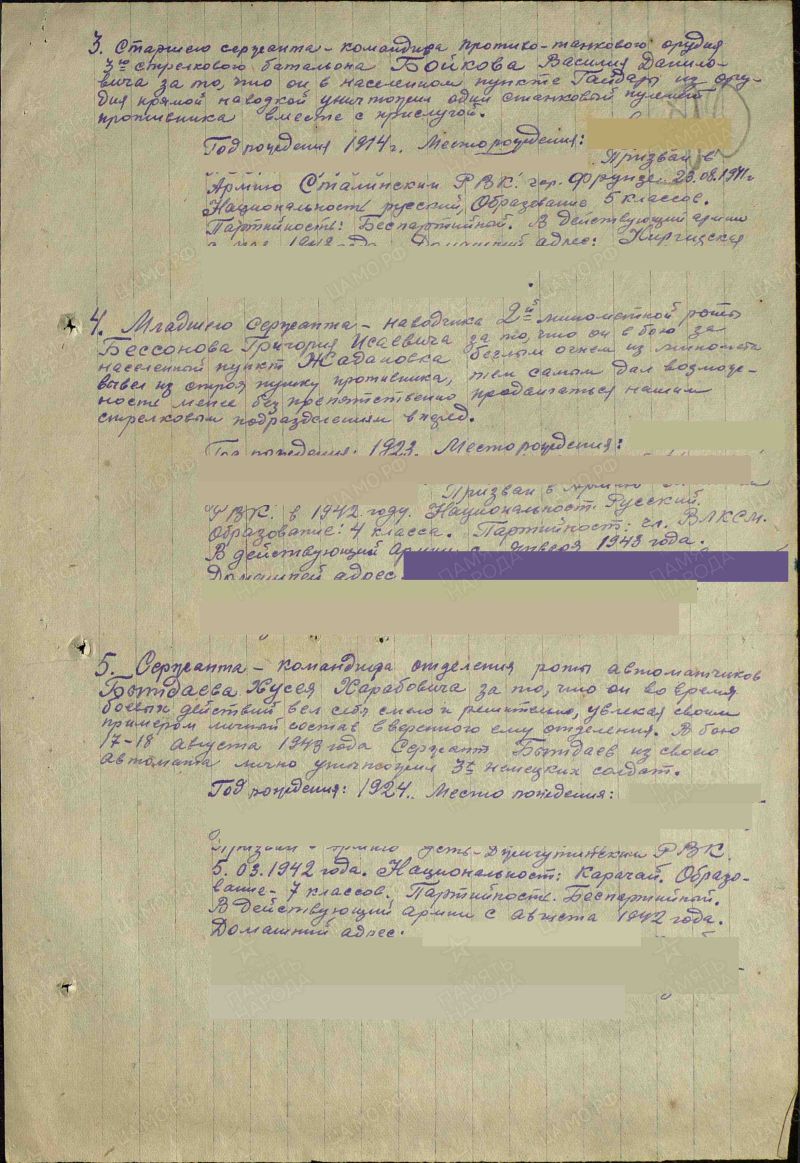 3. Старшего сержанта - командира противо-танкового орудия
3го стрелкового батальона Бойкова Василия Данило-
вича за то, что он в населенном пункте Гайдары из ору-
дия прямой наводкой уничтожил один станковый пулемет
противника вместе с прислугой.
Год рождения 1914 г. Место рождения:
Призван в
Армию Сталинским РВК. гор. Фрунзе 23.08.1941г
Национальность русский, Образование 5 классов.
Партийность: Беспартийной. В действующий армии
с мая 1942 года Домашний адрес: Киргизская
4. Младшего сержанта - наводчика 2ой минометной роты
Бессонова Григория Исаевича за то, что он в бою за
населенный пункт Жадановка беглым огнем из миномета
вывел из строя пушку противника, тем самым дал возмож-
ность менее без препятственно продвигаться нашим
стрелковым подразделениям вперед.
Год рождения: 1923. Место рождения:
Призван в Армию
РВК. в 1942 году. Национальность Русский.
Образование: 4 класса. Партийность: чл. ВЛКСМ.
В действующий армии с января 1943 года.
Домашней адрес.
5. Сержанта - командира отделения роты автоматчиков
Бытдаева Хусея Харабовича за то, что он во время
боевых действий вел себя смело и решительно, увлекая своим
примером личный состав вверенного ему отделения. В бою
17-18 августа 1943 года Сержант Бытдаев из своего
автомата лично уничтожил 3х немецких солдат.
Год рождения: 1924. Место рождения:
Призван в армию Усть-Джегутинским РВК.
5.03.1942 года. Национальность: Карачай. Образо-
вание - 7 классов. Партийность. Беспартийной.
В действующий армии с августа 1942 года.
Домашний адрес.